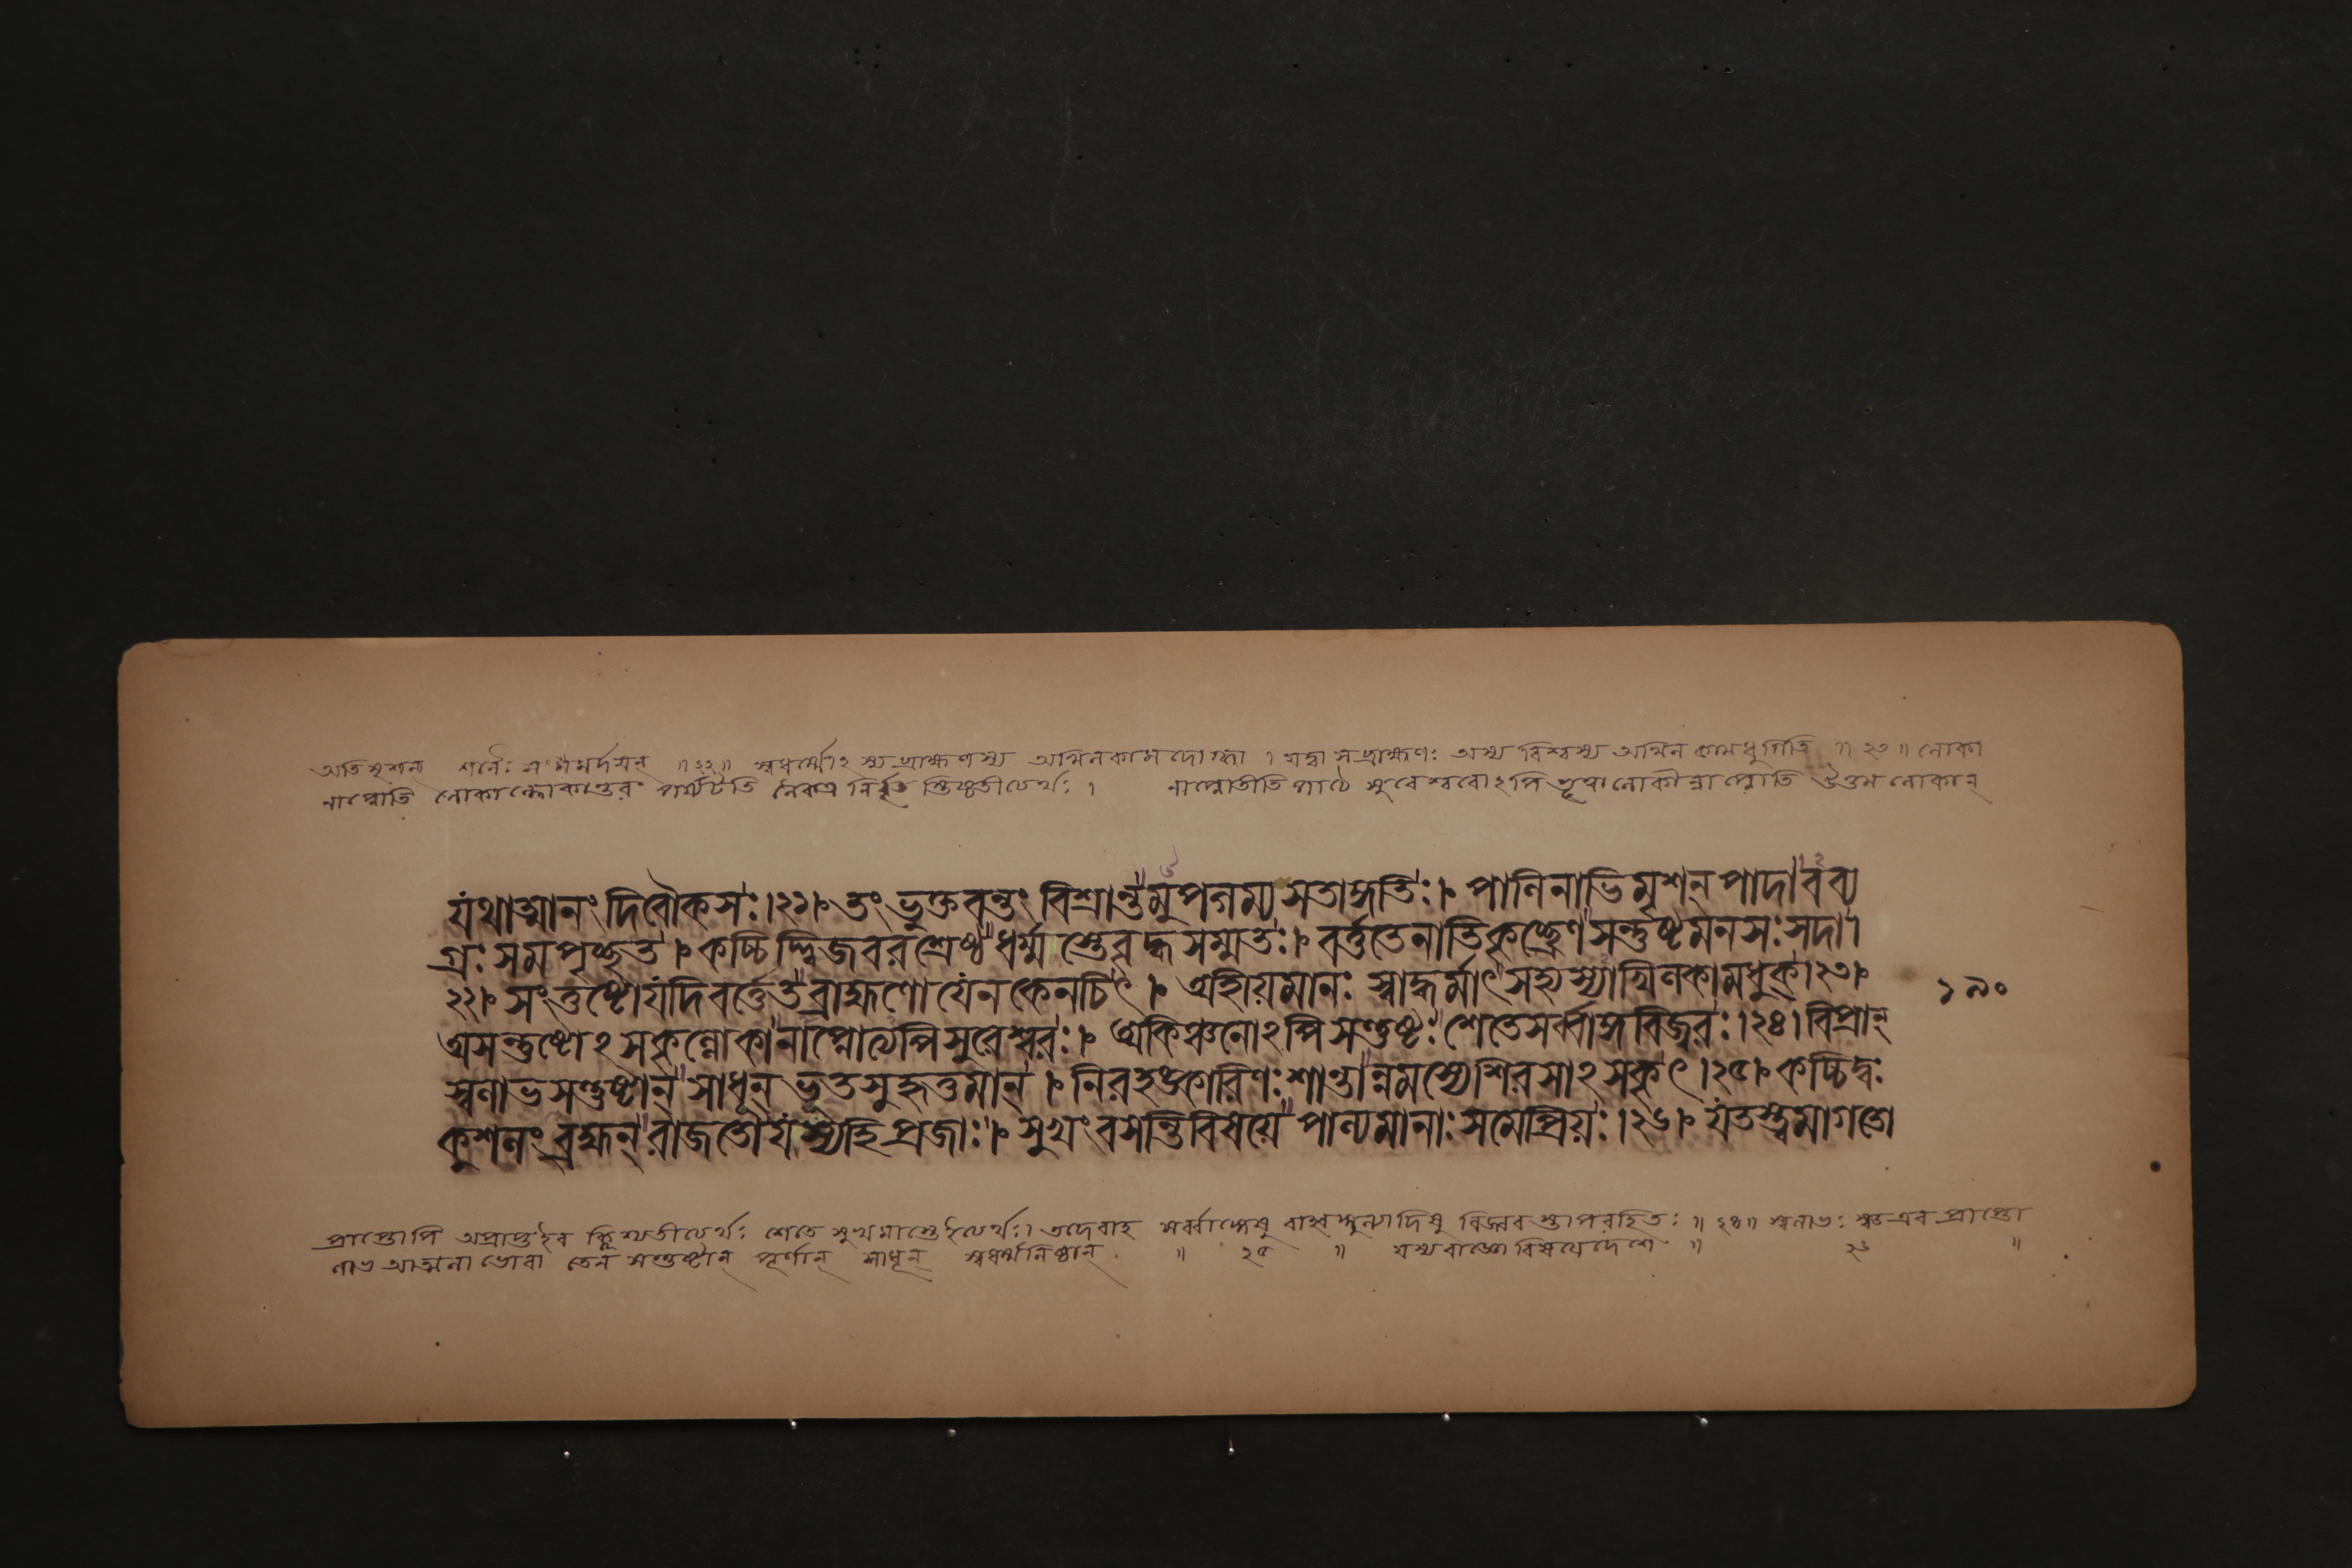 অতিমৃশন্ শনৈঃ সংমর্দয়ন্ ॥২২॥ স্বধর্ম্মোঽস্য ব্রাহ্মণস্য অখিলকামদোগ্ধা । যদ্বা সব্রাহ্মণঃ অস্য বিশ্বস্য অখিল কামধুগিতি ॥২৩॥ লোকা
নাপ্নোতি লোকাল্লোকান্তরং পর্য্যটতি নৈকত্র নির্বৃত স্তিষ্ঠতীত্যর্থঃ । নাপ্নোতীতি পাঠে সুরেশ্বরোঽপি লোকান্নাপ্নোতি উত্তম লোকান্
যথাত্মানং দিবৌকসঃ।২১। তং ভুক্তবন্তং বিশ্রান্তমুপগম্য সতাঙ্গতিঃ। পাণিনাভিমৃশন্ পাদাবব্য
গ্রঃ সমপৃচ্ছত। কচ্চিদ্দ্বিজবরশ্রেষ্ঠ ধর্ম্মস্তেবৃদ্ধসম্মতঃ। বর্ত্ততেনাতিকৃচ্ছ্রেণ সন্তুষ্টমনসঃ সদা।
২২। সংতুষ্টোযদিবর্ত্তেত ব্রাহ্মণো যেন কেনচিৎ। অহীয়মানঃ স্বাদ্ধর্মাৎ সহ্যস্যাখিলকামধুক্।২৩।
অসন্তুষ্টোঽসকৃল্লোকানাপ্নোত্যপিসুরেশ্বরঃ। অকিঞ্চনোঽপিসন্তুষ্টঃ শেতেসর্ব্বাঙ্গবিজ্বরঃ।২৪। বিপ্রান্
স্বলাভসন্তুষ্টান্ সাধূন্ ভূতসুহৃত্তমান্। নিরহঙ্কারিণঃ শান্তান্নমস্যেশিরসাঽসকৃৎ।২৫। কচ্চিদ্বঃ
কুশলং ব্রহ্মন্ রাজতো যস্যহি প্রজাঃ। সুখং বসন্তি বিষয়ে পাল্যমানাঃ সমেপ্রিয়ঃ।২৬। যতস্ত্বমাগতো
১৯০
প্রাপ্তোপি অপ্রাপ্তইব ক্লিশ্যতীত্যর্থঃ শেতে সুখমাস্তেইত্যর্থঃ। তদেবাহ সর্ব্বাঙ্গেষু বিজ্বর স্তাপরহিতঃ ॥২৪॥ স্বলাভঃ স্বত এব প্রাপ্তো
লাভ আত্মনা ভোবা তেন সন্তুষ্টান্ পূর্ণান্ সাধূন্ স্বধর্ম্মনিষ্ঠান্ ॥ ২৫ ॥ যস্য রাজ্ঞো বিষয়েদেশে ॥ ২৬ ॥